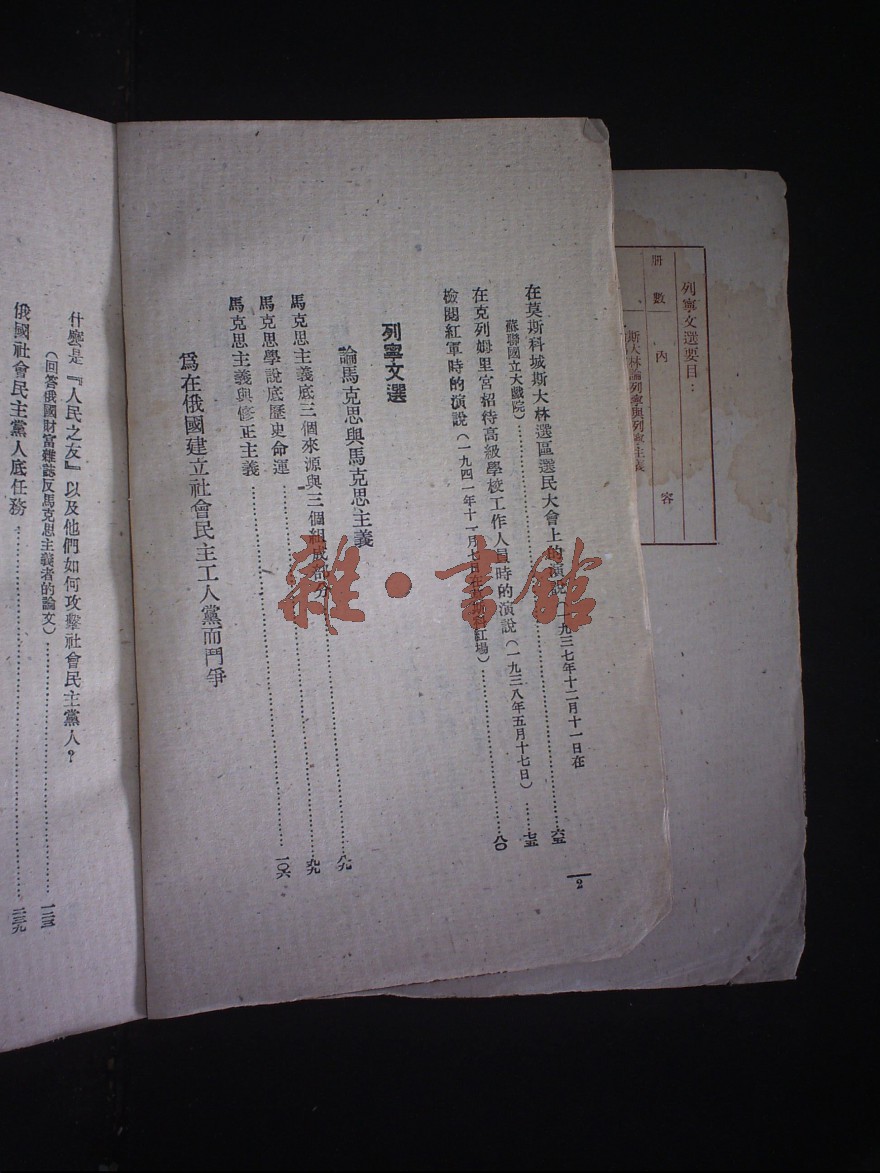 列寧文選要目：
冊數　內　容
斯大林論列寧與列寧主義
在莫斯科城斯大林選區選民大會上的演說（一九三七年十二月十一日在
蘇聯國立大戲院）……六五
在克列姆里宮招待高級學校工作人員時的演說（一九三八年五月十七日）……七五
檢閱紅軍時的演說（一九四一年十一月七日在莫斯科紅場）……八〇
列寧文選
論馬克思與馬克思主義
馬克思主義底三個來源與三個組成部分……八九
馬克思學說底歷史命運……九九
馬克思主義與修正主義……一〇六
爲在俄國建立社會民主工人黨而鬥爭
2
什麼是『人民之友』以及他們如何攻擊社會民主黨人？
（回答俄國財富雜誌反馬克思主義者的論文）……一二三
俄國社會民主黨人底任務……二三九
雜·書館